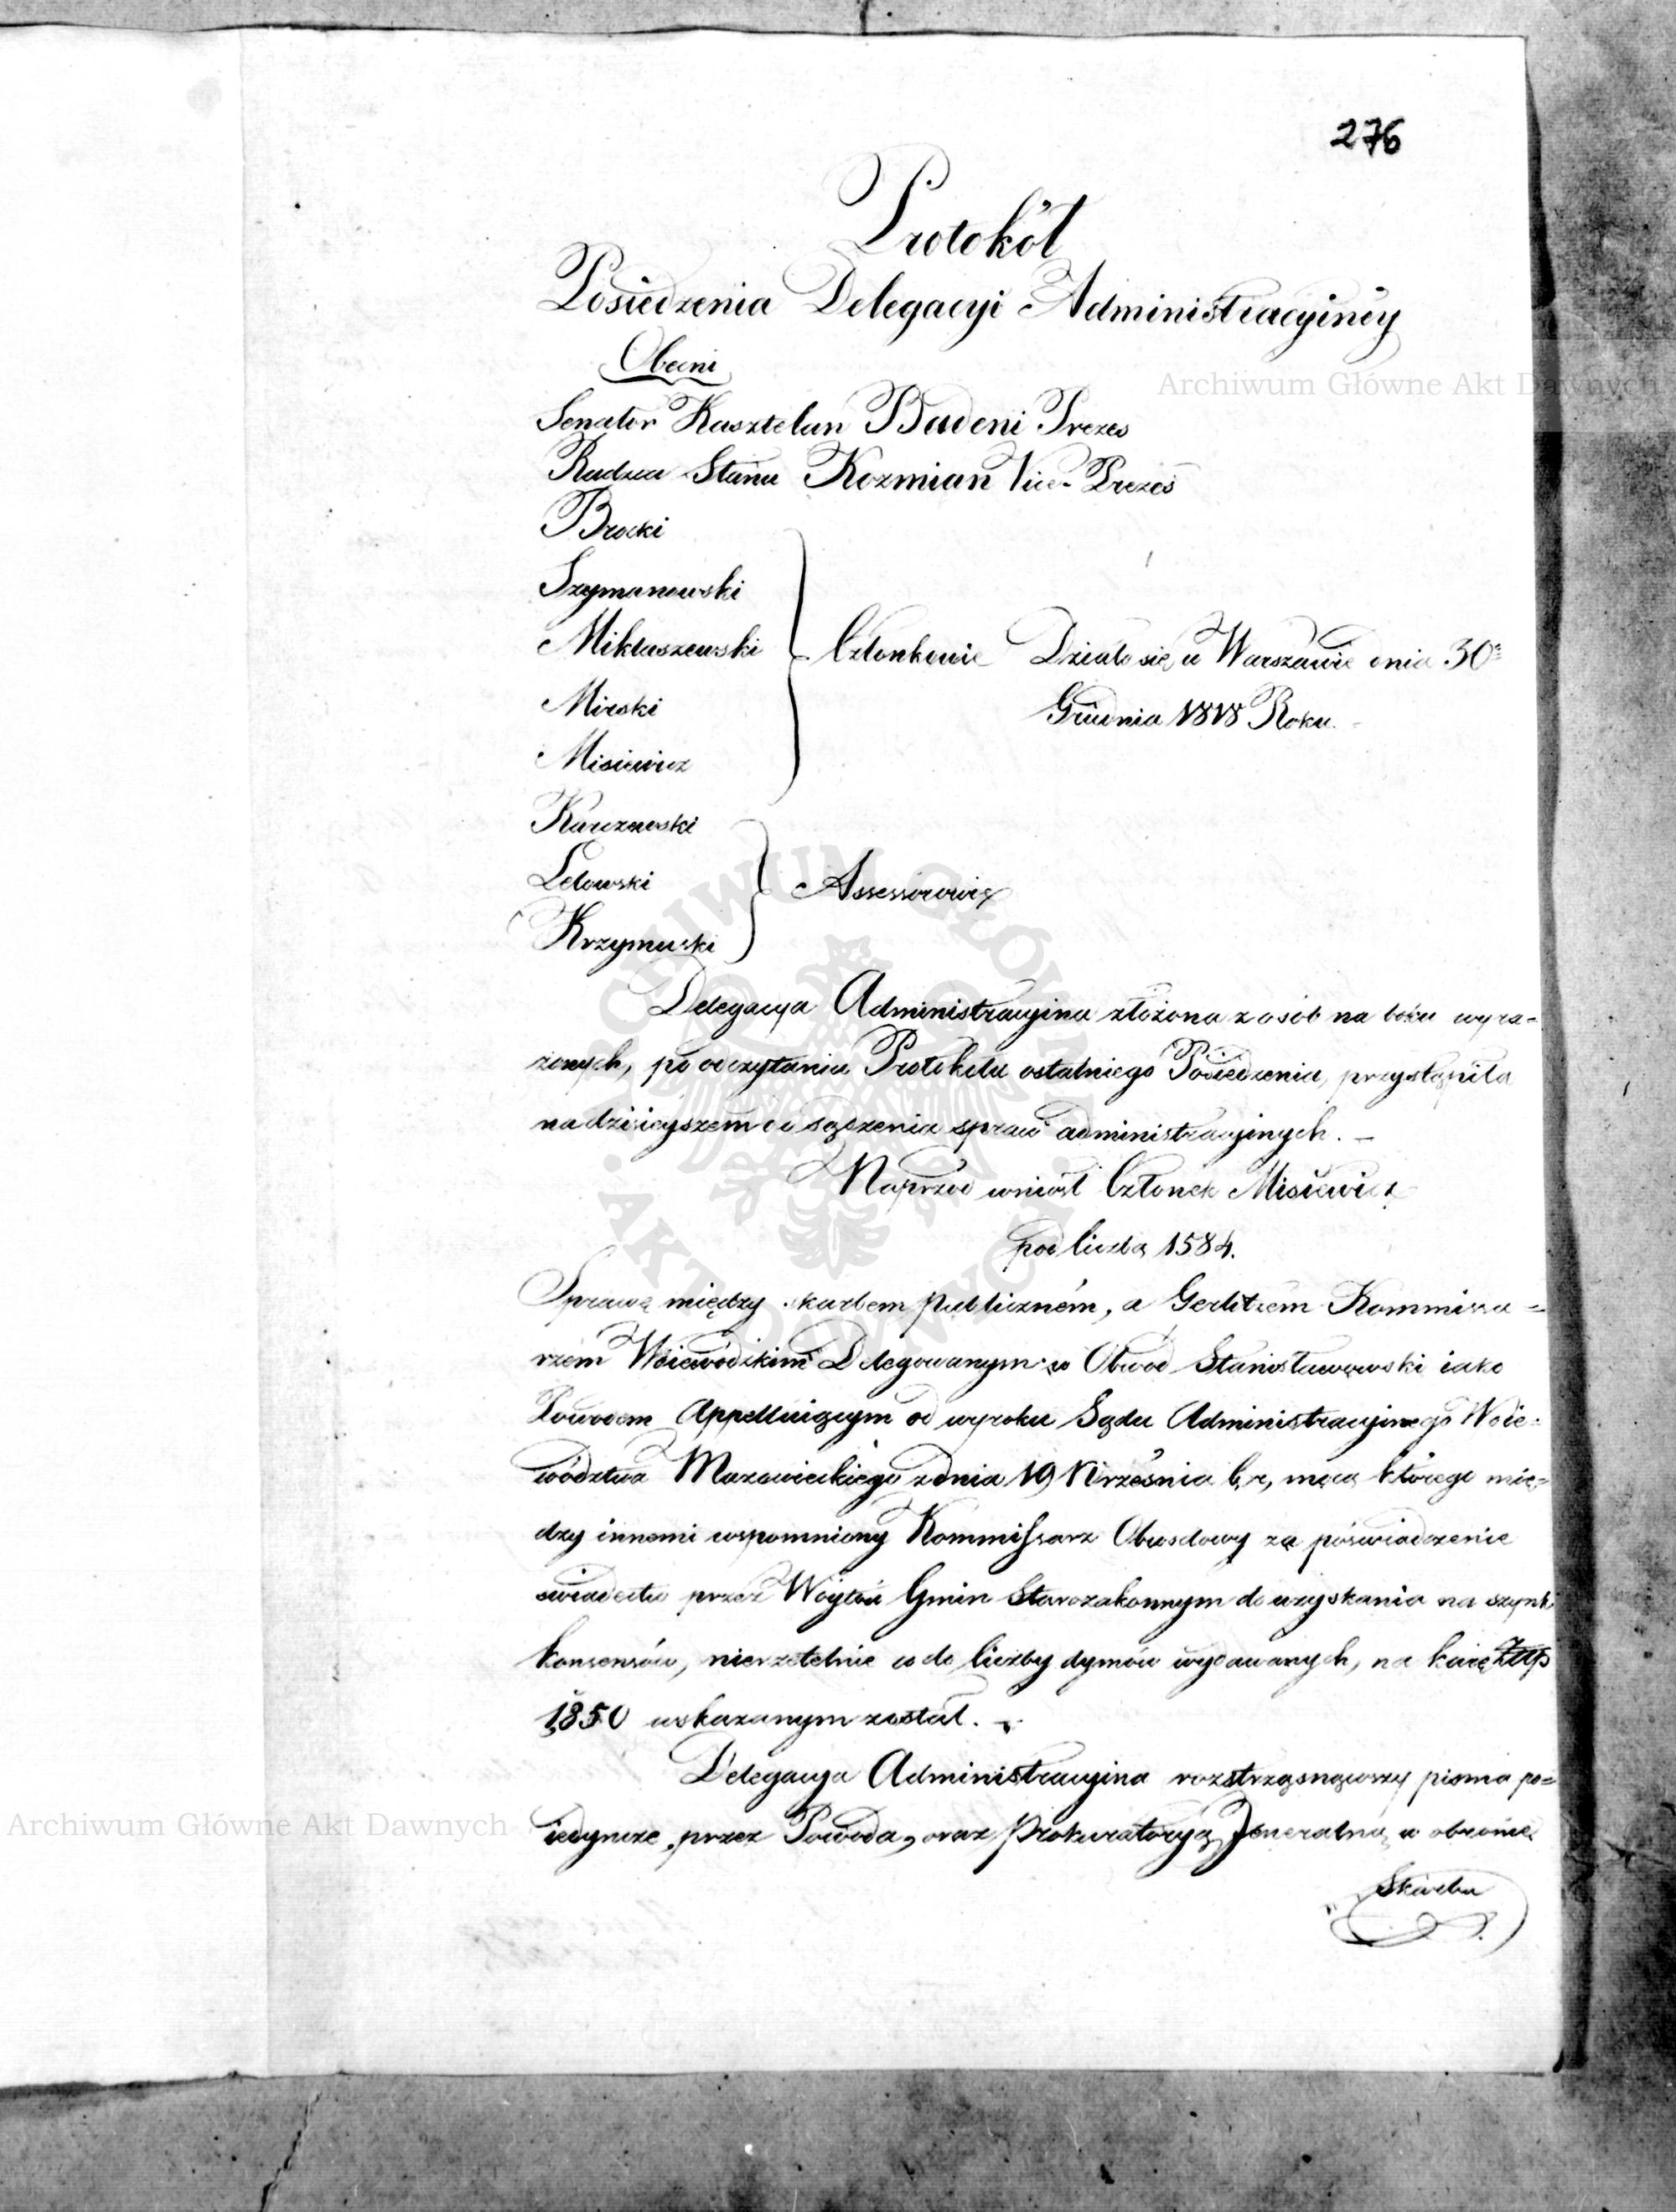 276
Protokół
Posiedzenia Delegacyi Administracyiney
Obecni
Senator Kasztelan Badeni Prezes
Radzca Stanu Kozmian Vice-Prezes
Brocki
Szymanowski
Mikłaszewski
Mirski
Misiewicz
Członkowie
Działo się w Warszawie dnia 30º
Grudnia 1818 Roku.
Karczewski
Letowski
Krzymuski
Assessorowie
Delegacya Administracyina złożona z osób na boku wyra=
żonych, po odczytaniu Protokułu ostatniego Posiedzenia, przystąpiła
na dzisieyszem do sądzenia spraw administracyinych. –
Naprzód wniósł Członek Misiewicz
pod liczbą 1584.
Sprawę między skarbem publiczném, a Gerlitzem Kommissa=
rzem Woiewódzkim Delegowanym w Obwód Stanisławowski iako
Powodem Appelluiącym od wyroku Sądu Administracyinego Woie=
wództwa Mazowieckiego z dnia 19 Września b, r, mocą którego mię=
dzy innemi wspomniony Kommissarz Obwodowy za poświadczenie
świadectw przez Woytów Gmin Starozakonnym do uzyskania na szynki
konsensów, nierzetelnie co do liczby dymów wydawanych, na karę Złłp
1,850 wskazanym został. –
Delegacya Administracyina roztrząsnąwszy pisma po=
iedyncze, przez Powoda, oraz Prokuratoryą Jeneralną w obronie
Skarbu
Archiwum Główne Akt Dawnych
Archiwum Główne Akt Dawnych
ARCHIWUM GŁÓWNE AKT DAWNYCH